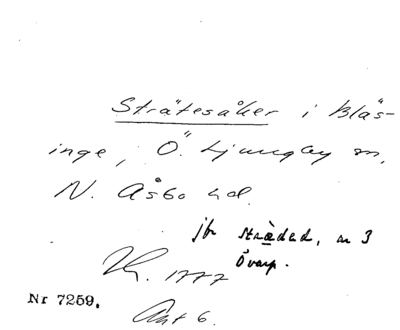 Strätesåker i Bläs-
inge, Ö. Ljungby sn,
N. Åsbo hd.
jfr sträded, n 3
Övarp.
1777
Nr 7259.
Akt 6.